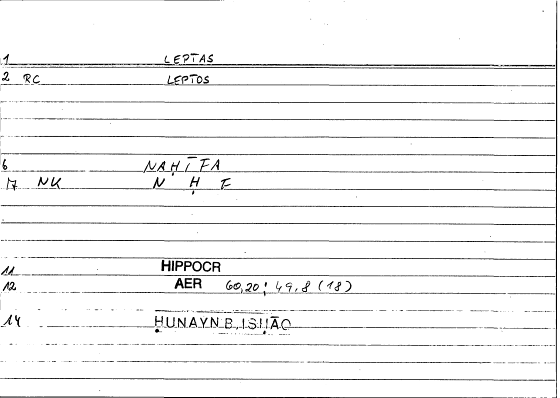 1 LEPTAS
2 RC LEPTOS
6 NAḤĪFA
17 NK N Ḥ F
11 HIPPOCR
12 AER 60,20; 49,8 (18)
14 ḤUNAYN B. ISḤĀQ